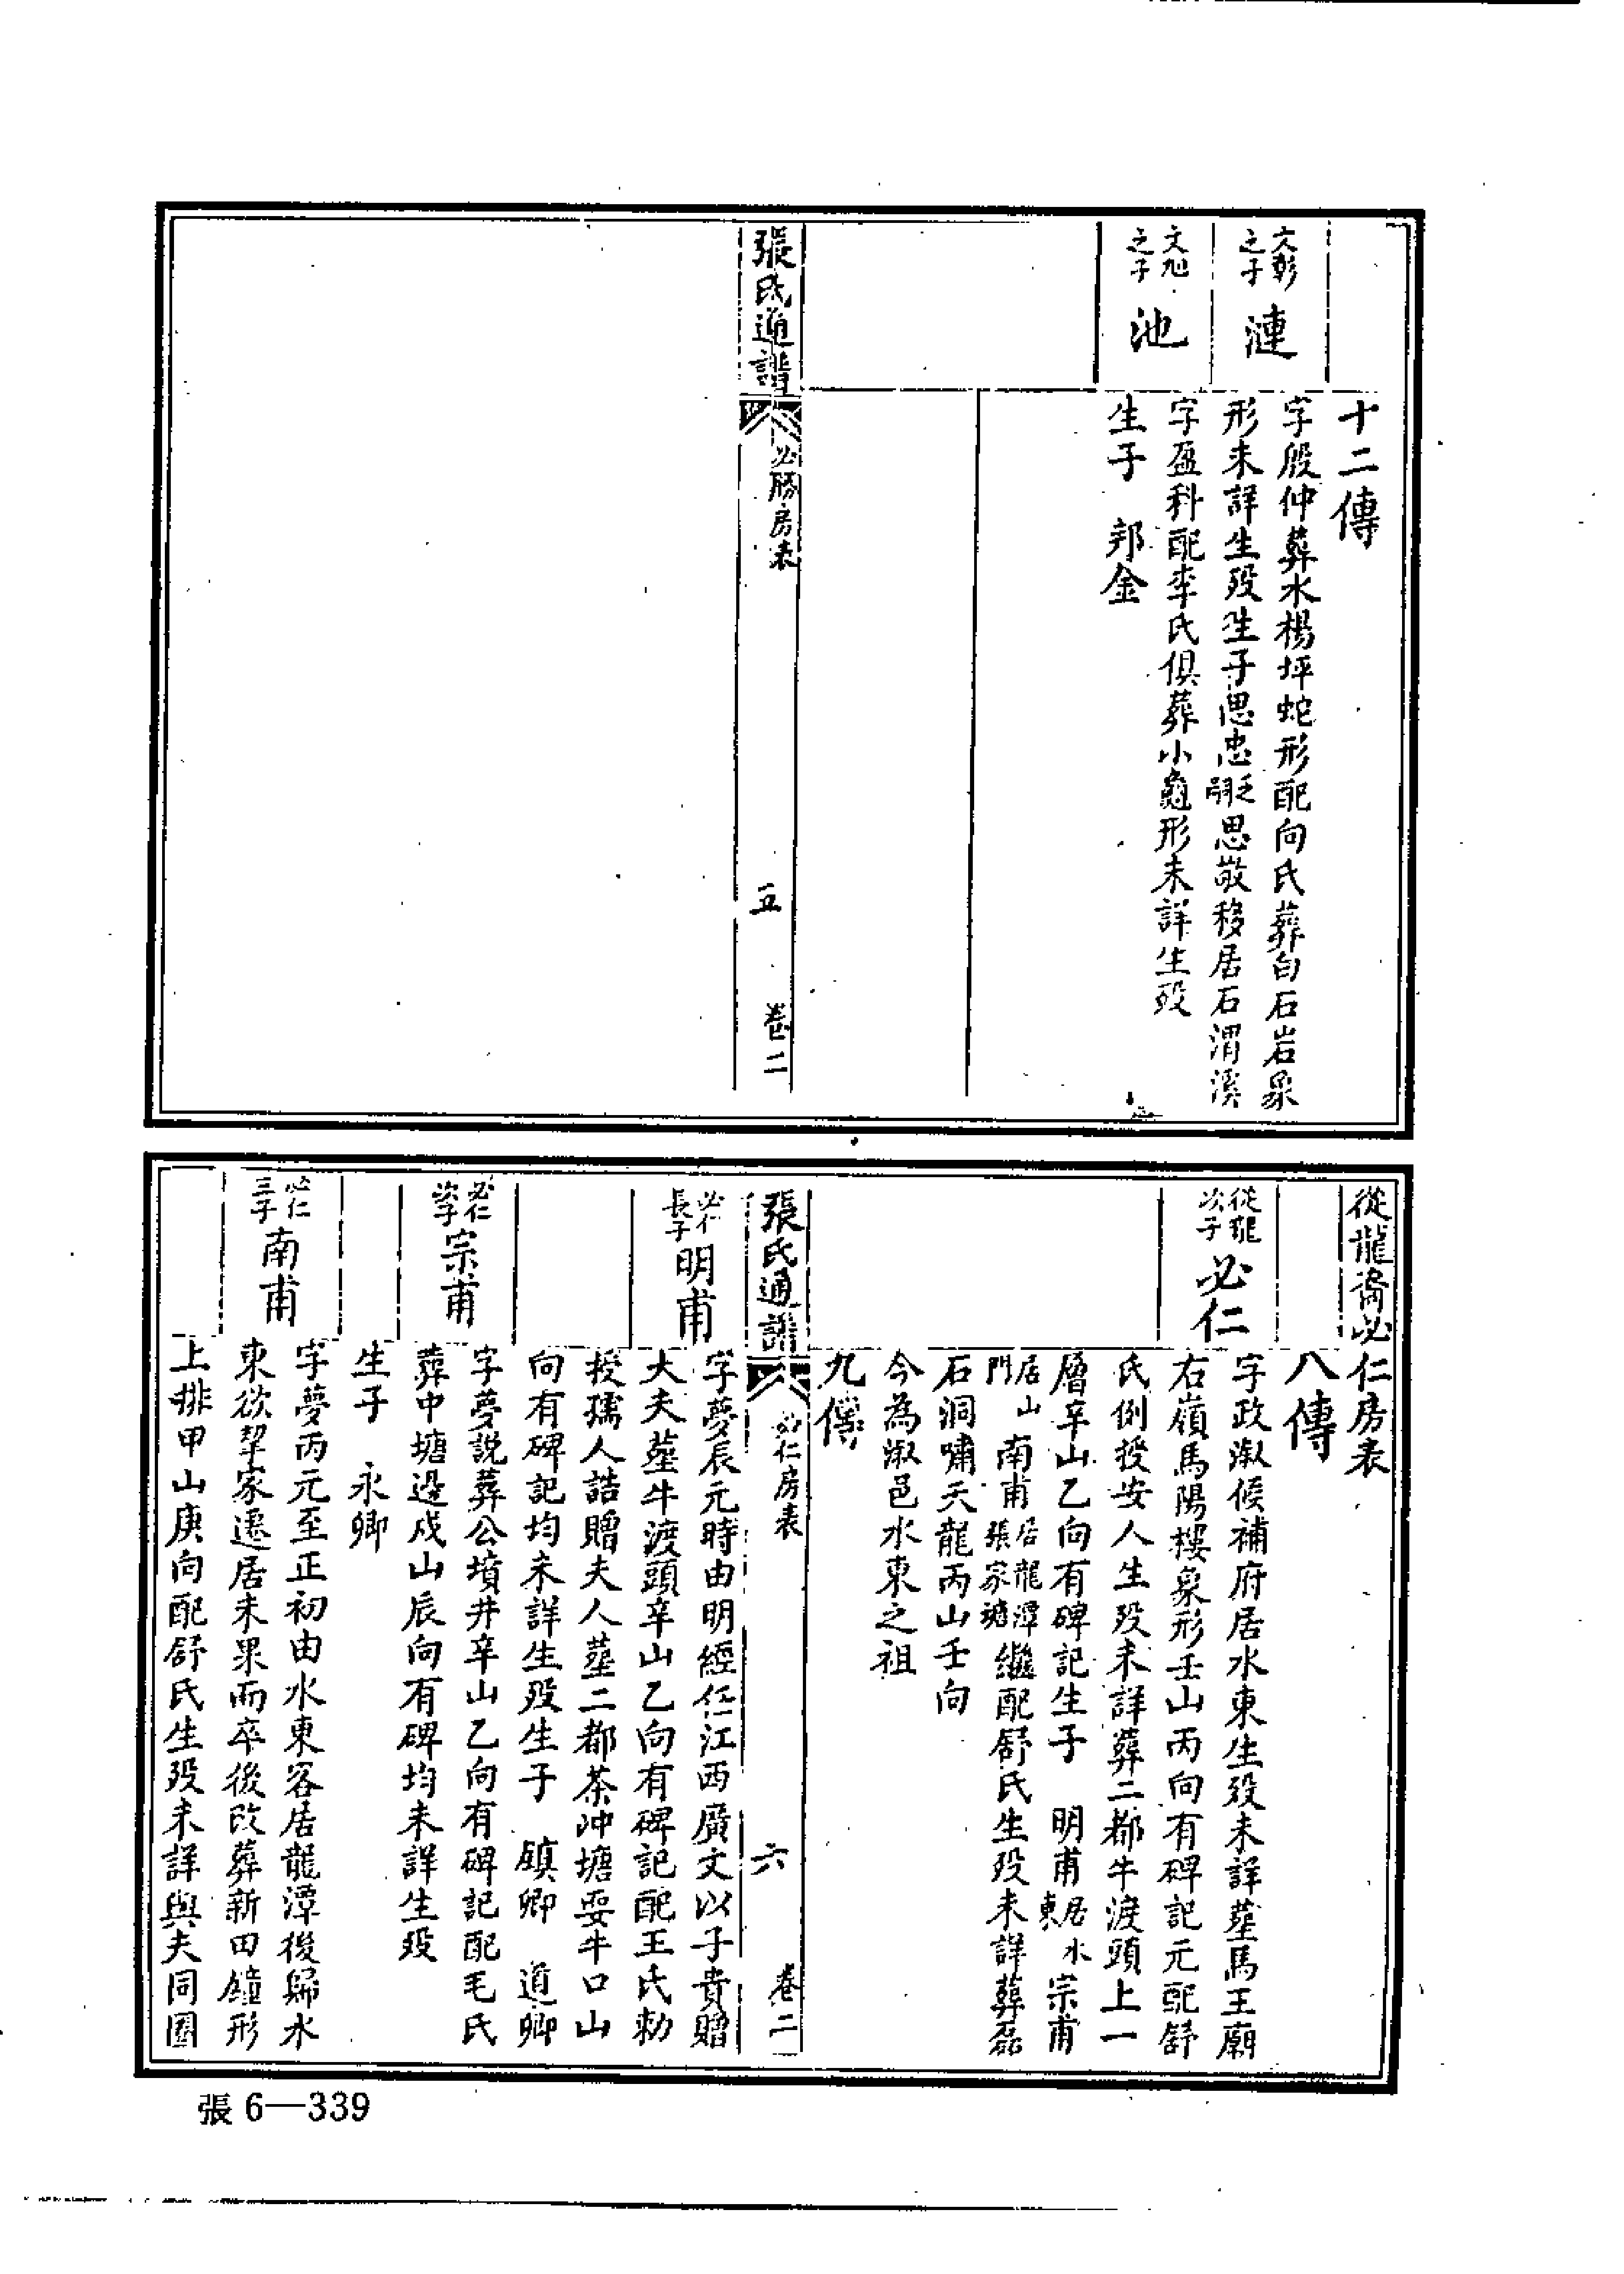 十二傳
文彰之子 漣
字殷仲葬水楊坪蛇形配向氏葬白石岩象
形未詳生歿生子思忠乏嗣思敬移居石渭溪
文旭之子 池
字盈科配李氏俱葬小龜形未詳生歿
生子 邦金
張氏通譜 必勝房表 五 卷二
從龍裔必仁房表
八傳
從龍次子 必仁
字政淑候補府居水東生歿未詳塟馬王廟
右嶺馬陽樓象形壬山丙向有碑記元配舒
氏例授安人生歿未詳葬二都牛渡頭上一
層辛山乙向有碑記生子 明甫居水東宗甫
居山門南甫居龍潭張家塘繼配舒氏生歿未詳葬磊
石洞嘯天龍丙山壬向
今為淑邑水東之祖
九傳
張氏通譜 必仁房表 六 卷二
必仁長子 明甫
字夢辰元時由明經任江西廣文以子貴贈
大夫塟牛渡頭辛山乙向有碑記配王氏勅
授孺人誥贈夫人塟二都茶冲塘耍牛口山
向有碑記均未詳生歿生子 鎮卿 道卿
必仁次子 宗甫
字夢説葬公墳井辛山乙向有碑記配毛氏
葬中塘邊戍山辰向有碑均未詳生歿
生子 永卿
必仁三子 南甫
字夢丙元至正初由水東客居龍潭後歸水
東欲挈家遷居未果而卒後改葬新田鐘形
上排甲山庚向配舒氏生歿未詳與夫同園
張 6—339